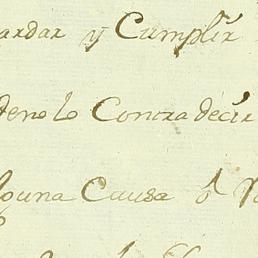 ardar y Cumplir
deno lo Contradecir
lguna Causa ó